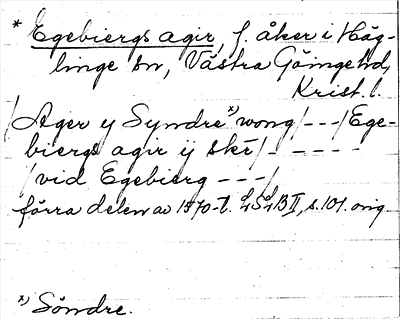 * Egebiergs agir, f. åker i Häg-
linge sn, Västra Göinge hd,
Krist. l.
/Ager y Syndre x) wong/---/Ege-
biergs agir ij skr/-----
/vid Egebierg ---/
förra delen av 1570-t. LSLB II, s. 101. orig.
x) Söndre.